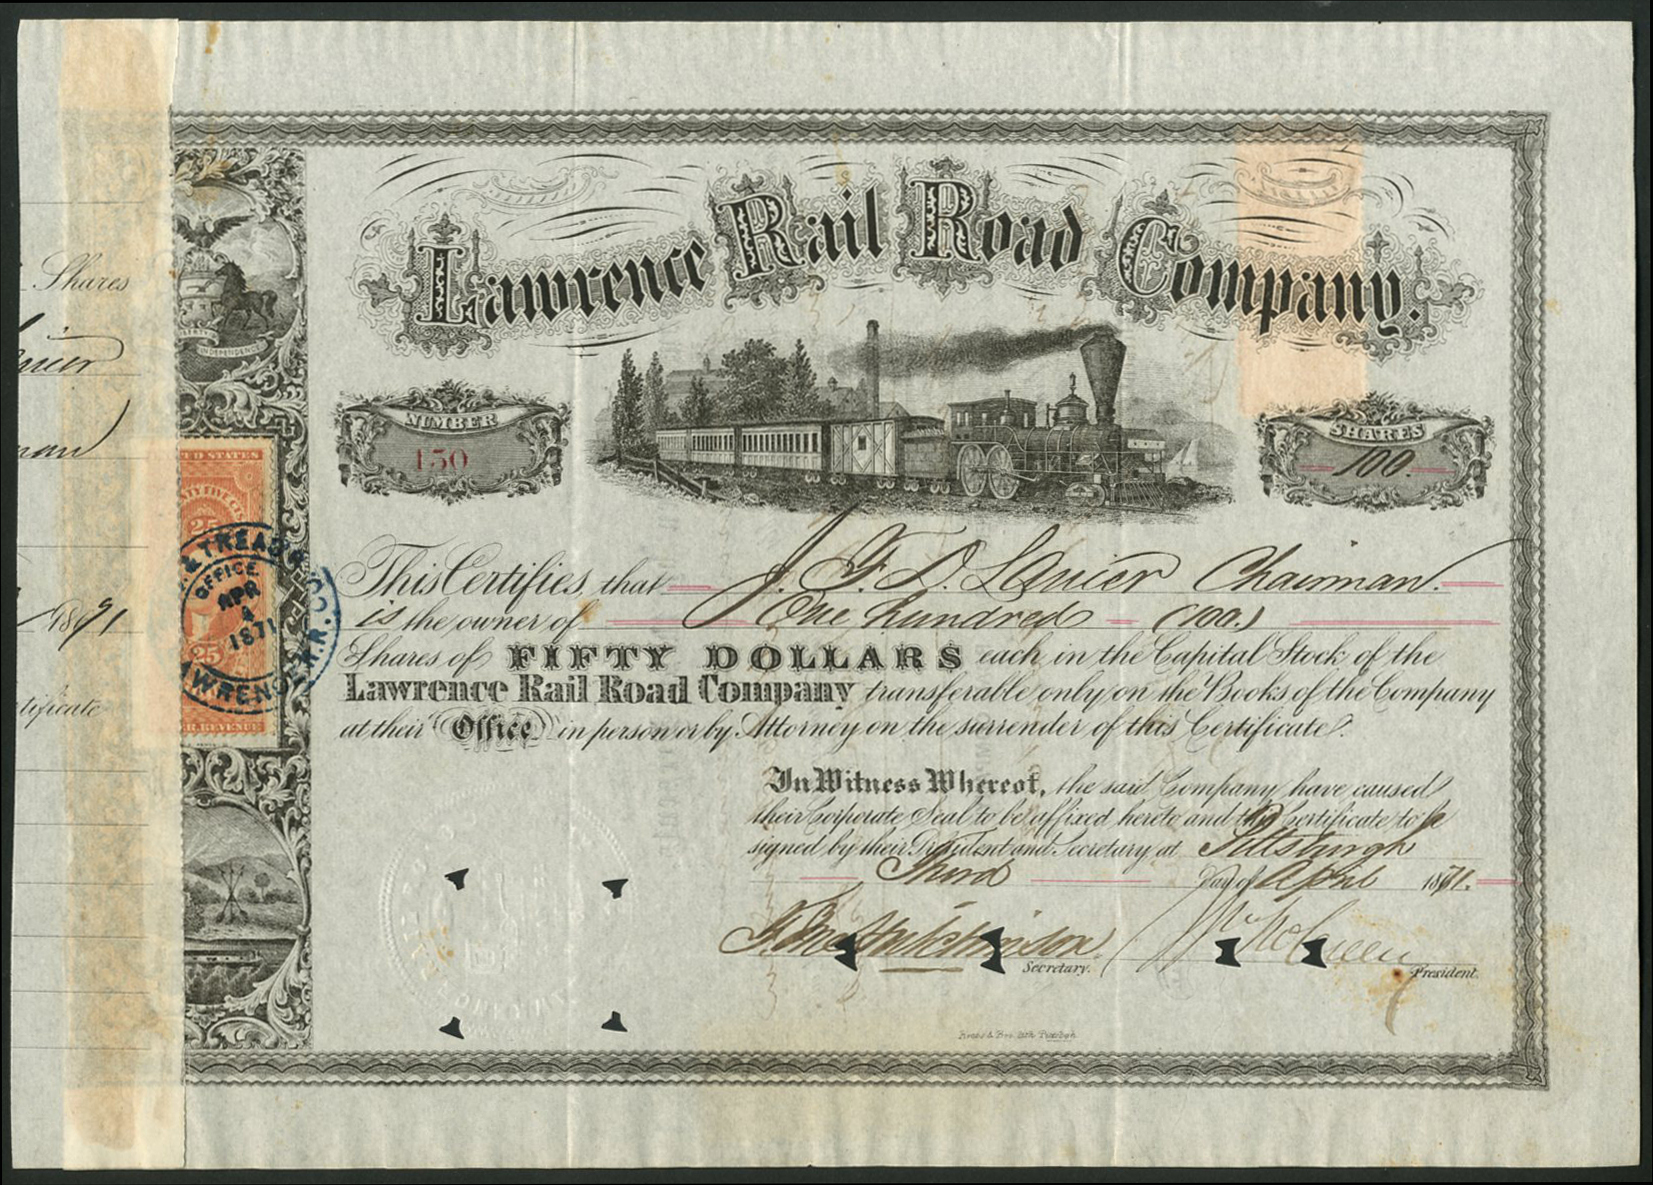 Lawrence Rail Road Company.
Shares
INDEPENDENCE
NUMBER
150
SHARES
100.
This Certifies that J. F. D. Lanier Chairman.
is the owner of One hundred (100.)
Shares of FIFTY DOLLARS each in the Capital Stock of the
Lawrence Rail Road Company transferable only on the Books of the Company
at their Office in person or by Attorney on the surrender of this Certificate.
In Witness Whereof, the said Company have caused
their Corporate Seal to be affixed hereto and this Certificate to be
signed by their President and Secretary at Pittsburgh
Third Day of April 1871.
Secretary.
President.
1871
tificate
D STATES
25
& TREAS'S
OFFICE
APR
4
1871
25
WRENCE R.R. CO.
R. REVENUE